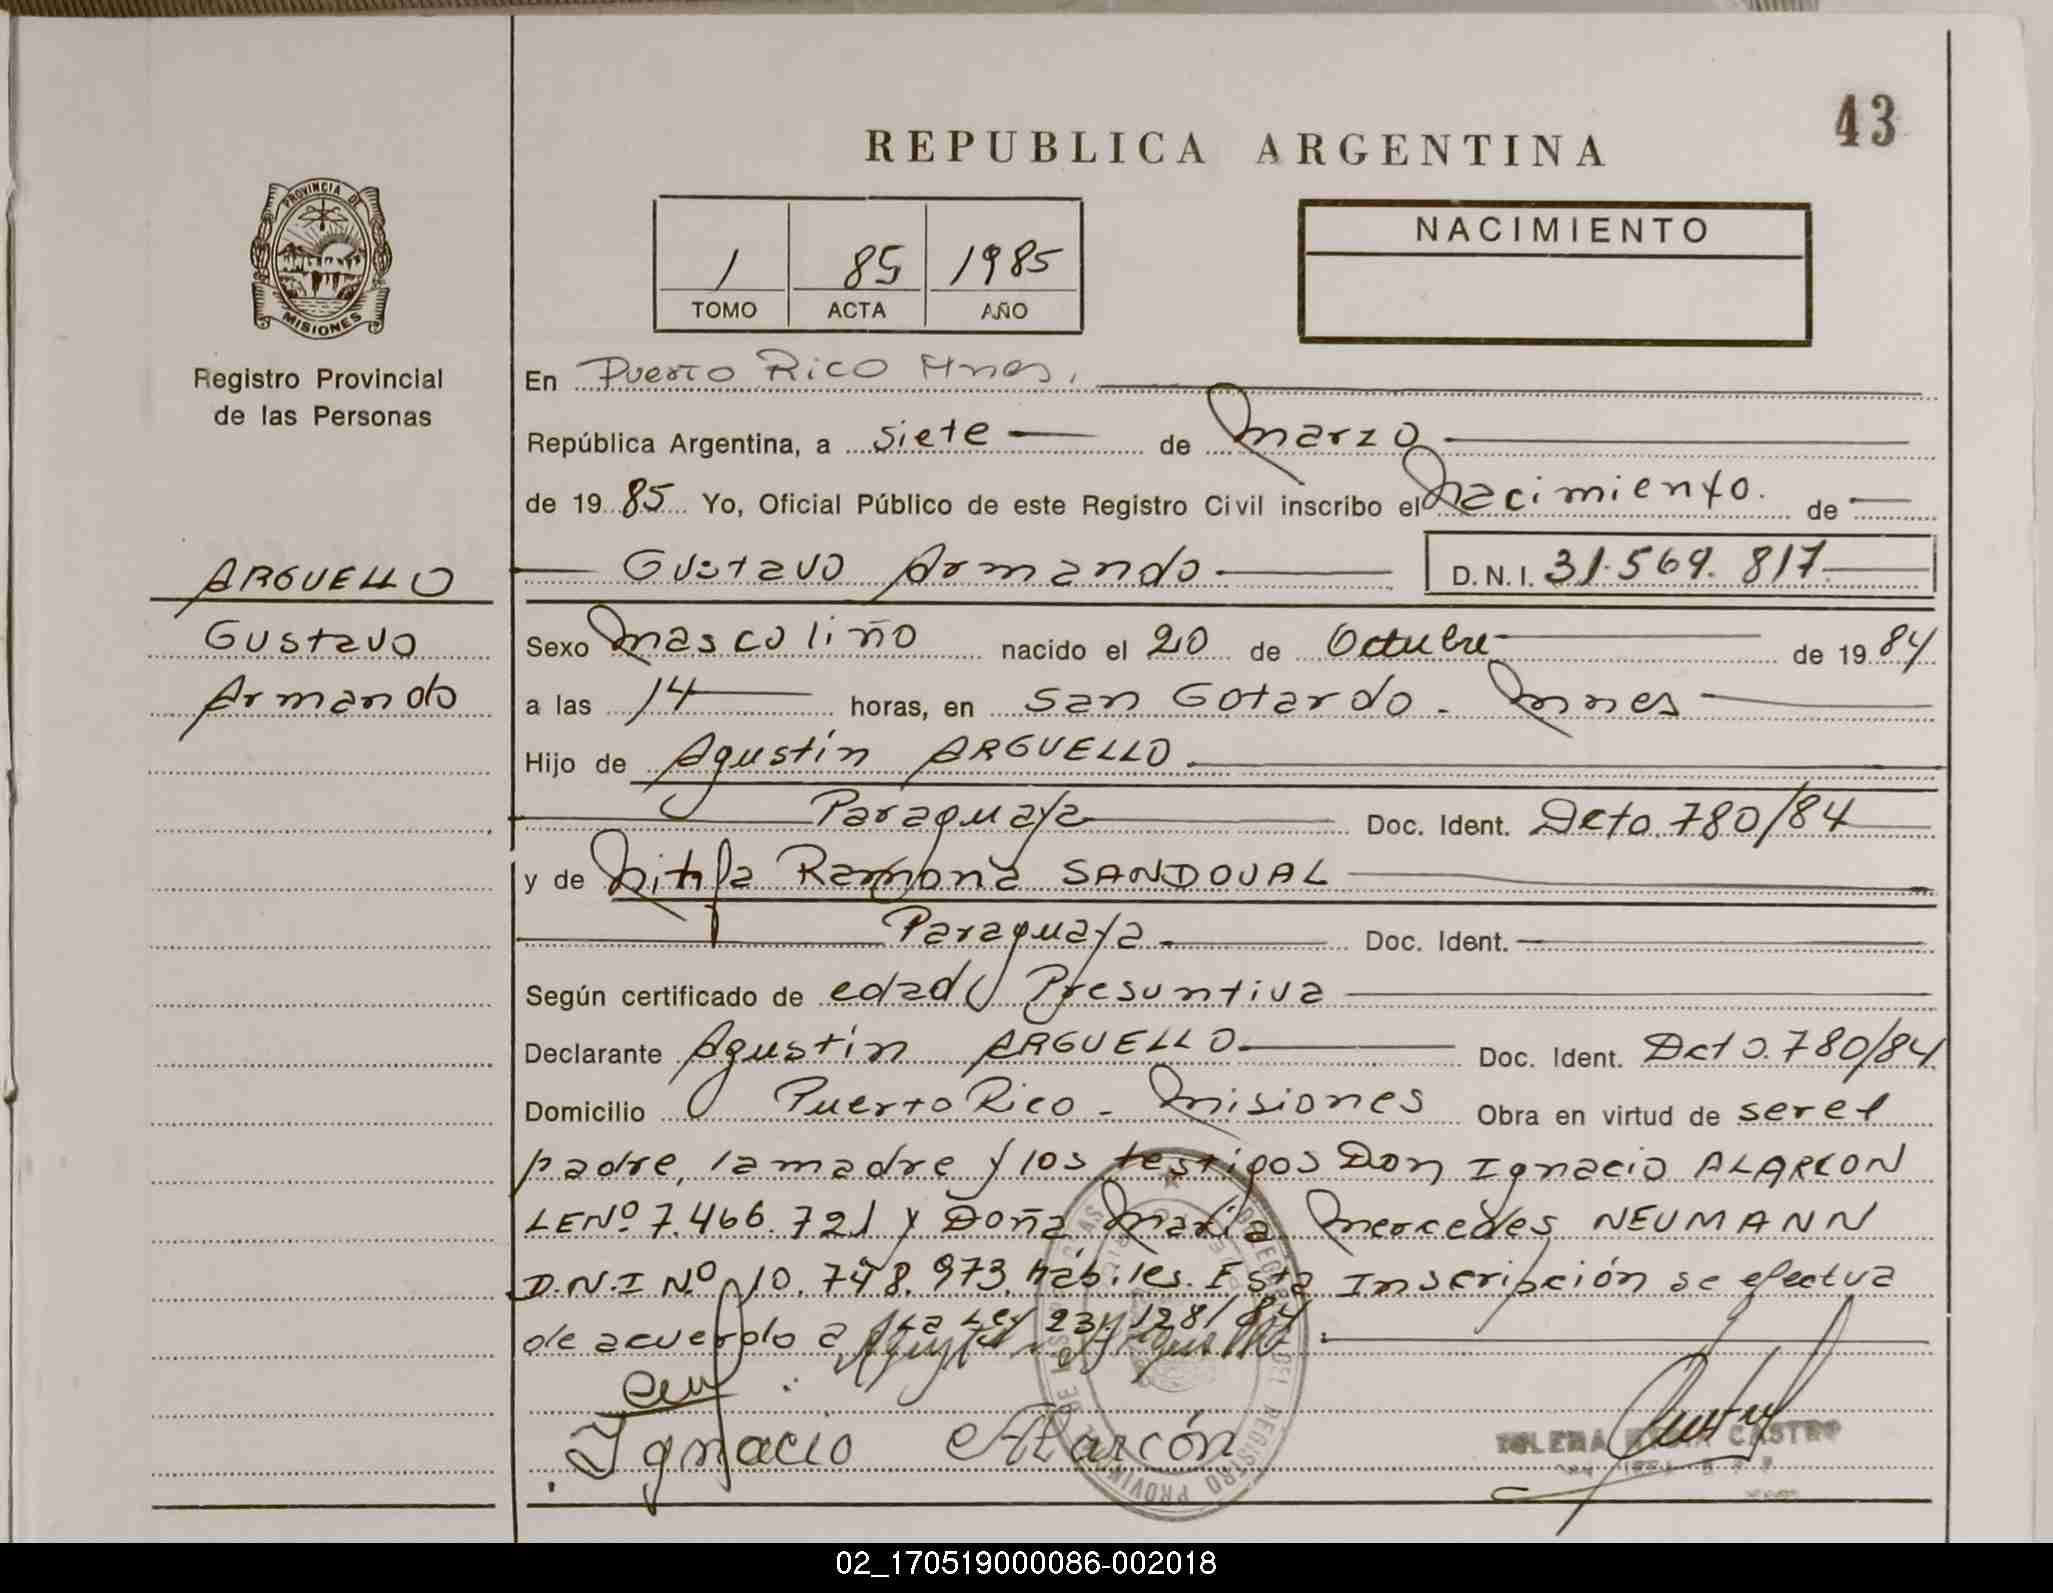 43
REPUBLICA ARGENTINA
PROVINCIA DE
MISIONES
Registro Provincial
de las Personas
1 85 1985
TOMO ACTA AÑO
NACIMIENTO
En Puerto Rico Mnes.
República Argentina, a siete de Marzo
de 1985 Yo, Oficial Público de este Registro Civil inscribo el Nacimiento. de
ARGUELLO
Gustavo
Armando
Gustavo Armando D.N.I. 31.569.817
Sexo Mascolino nacido el 20 de Octubre de 1984
a las 14 horas, en San Gotardo - Mnes
Hijo de Agustín ARGUELLO
Paraguaya Doc. Ident. Dcto. 780/84
y de Ramona SANDOVAL
Paraguaya Doc. Ident.
Según certificado de edad Presuntiva
Declarante Agustín ARGUELLO Doc. Ident. Dcto. 780/84
Domicilio Puerto Rico - Misiones Obra en virtud de ser el
padre, la madre y los testigos Don Ignacio ALARCON
LENº 7.466.721 y Doña María Mercedes NEUMANN
D.N.I Nº 10.748.973. hábiles. Esta Inscripción se efectua
de acuerdo a La Ley 23.128/84
Ignacio Alarcón
CASTRO
02_170519000086-002018